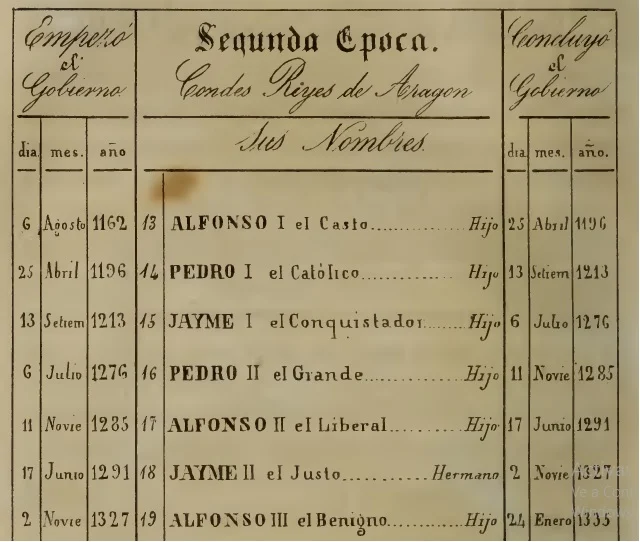 Empezó el Gobierno
Segunda Epoca.
Condes Riyes de Aragon
Concluyó el Gobierno
Sus Nombres.
dia. mes. año
dia. mes. año.
6 Agosto 1162 13 ALFONSO I el Casto Hijo 25 Abril 1196
25 Abril 1196 14 PEDRO I el Católico Hijo 13 Setiem 1213
13 Setiem 1213 15 JAYME I el Conquistador Hijo 6 Julio 1276
6 Julio 1276 16 PEDRO II el Grande Hijo 11 Novie 1285
11 Novie 1285 17 ALFONSO II el Liberal Hijo 17 Junio 1291
17 Junio 1291 18 JAYME II el Justo Hermano 2 Novie 1327
2 Novie 1327 19 ALFONSO III el Benigno Hijo 24 Enero 1335